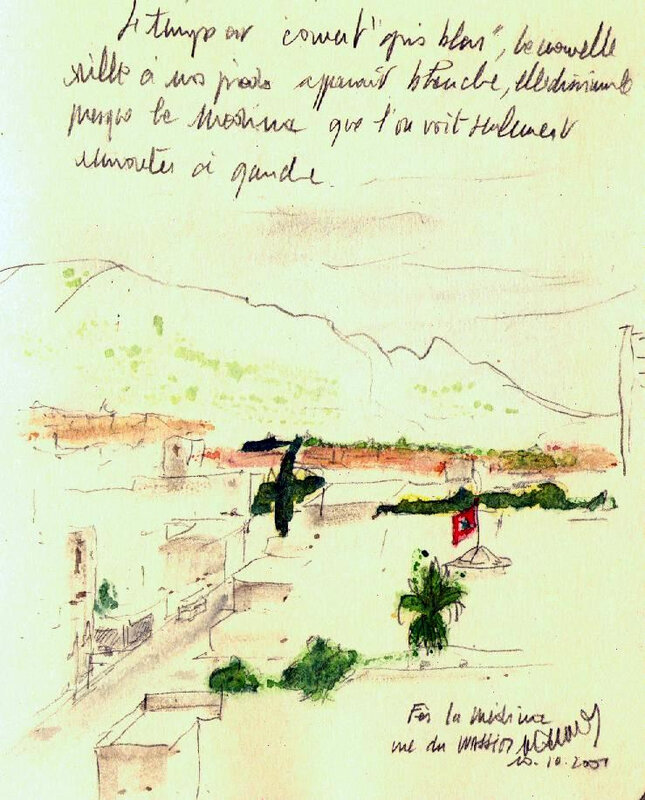 Le temps est couvert "gris blanc", la nouvelle
ville à nos pieds apparait blanche, elle dissimule
presque la médina que l'on voit seulement
remonter à gauche.
Fès la médina
vue du WASSIM
10.10.2001